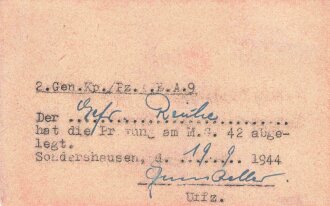 2.Gen.Kp./Pz.  E.A.9
Der Gefr. Reuhe
hat die Prüfung am M.G. 42 abge-
legt.
Sondershausen, d. 19.9. 1944
Uffz.